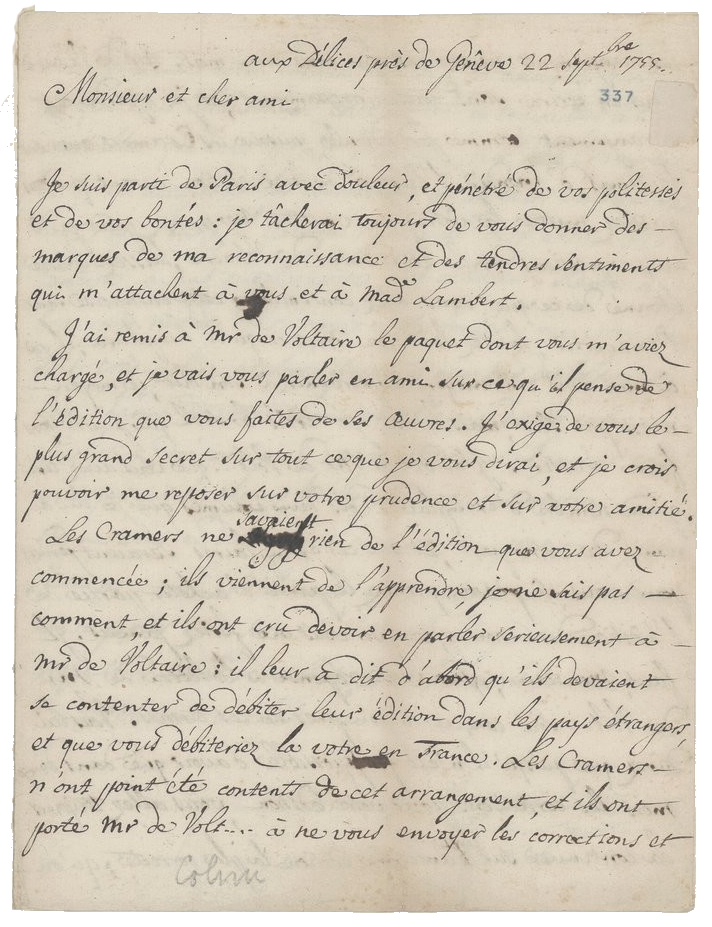 aux Délices près de Genêve 22 sept.bre 1755.
Monsieur et cher ami
337
Je suis parti de Paris avec douleur, et pénétré de vos politesses
et de vos bontés : je tâcherai toujours de vous donner des –
marques de ma reconnaissance et des tendres sentiments
qui m'attachent à vous et à Made Lambert.
J'ai remis à Mr de Voltaire le paquet dont vous m'aviez
chargé, et je vais vous parler en ami sur ce qu'il pense de
l'édition que vous faites de ses Œuvres. J'exige de vous le –
plus grand secret sur tout ce que je vous dirai, et je crois
pouvoir me reposer sur votre prudence et sur votre amitié.
Les Cramers ne savaient rien de l'édition que vous avez
commencée ; ils viennent de l'apprendre, je ne sais pas —
comment, et ils ont cru devoir en parler serieusement à –
Mr de Voltaire : il leur a dit d'abord qu'ils devaient
se contenter de débiter leur édition dans les pays étrangers,
et que vous débiteriez la votre en France. Les Cramers –
n'ont point été contents de cet arrangement, et ils ont
porté Mr de Volt.... à ne vous envoyer les corrections et
Colini